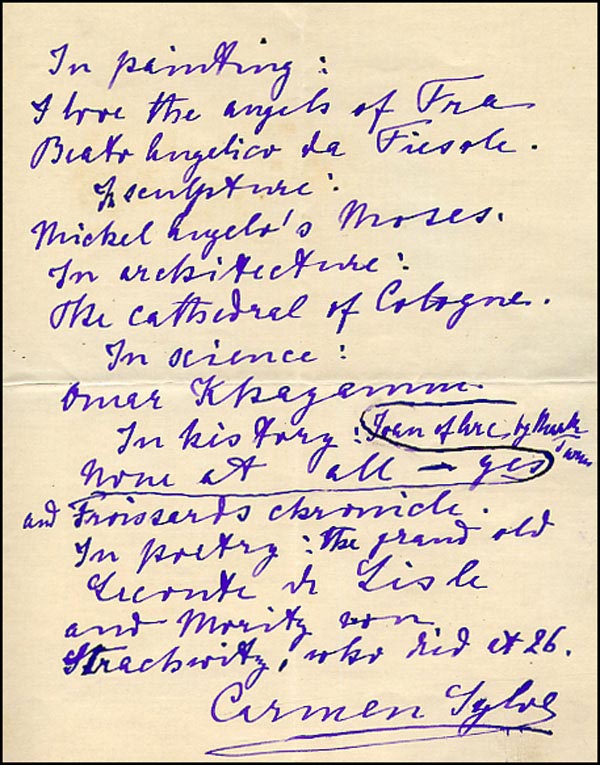 In painting:
I love the angels of Fra
Beato Angelico da Fiesole.
In sculpture:
Michel Angelo's Moses.
In architecture:
The cathedral of Cologne.
In science:
Omar Khayamm.
In history: Joan of Arc, by Mark Twain
None at all – yes
and Froissards chronicle.
In poetry: the grand old
Leconte de Lisle
and Moritz von
Strachwitz, who died at 26.
Carmen Sylva